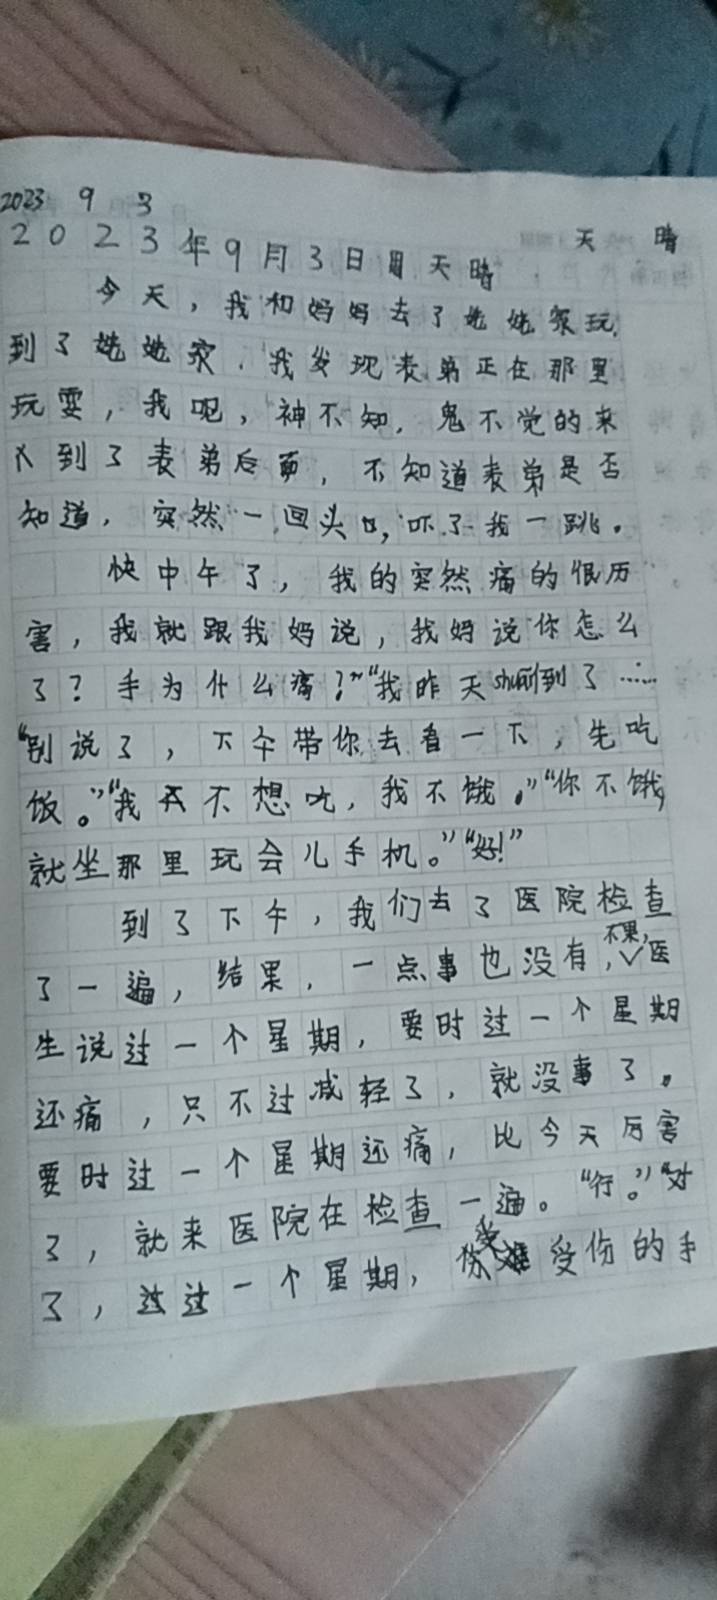 2023 9 3
天 晴
2023年9月3日周天晴
今天，我和妈妈去了姥姥家玩，
到了姥姥家，我发现表弟正在那里
玩耍，我呢，神不知，鬼不觉的来
到了表弟后面，不知道表弟是否
知道，突然一回头，吓了我一跳。
快中午了，我的突然痛的很历
害，我就跟我妈说，我妈说你怎么
了？手为什么痛？”“我昨天shuai到了……
“别说了，下午带你去看一下，先吃
饭。”“我不想吃，我不饿。”“你不饿，
就坐那里玩会儿手机。”“好！”
到了下午，我们去了医院检查
了一遍，结果，一点事也没有，不果，医
生说过一个星期，要时过一个星期
还痛，只不过减轻了，就没事了。
要时过一个星期还痛，比今天厉害
了，就来医院在检查一遍。“行。”“对
了，过一个星期，受伤的手